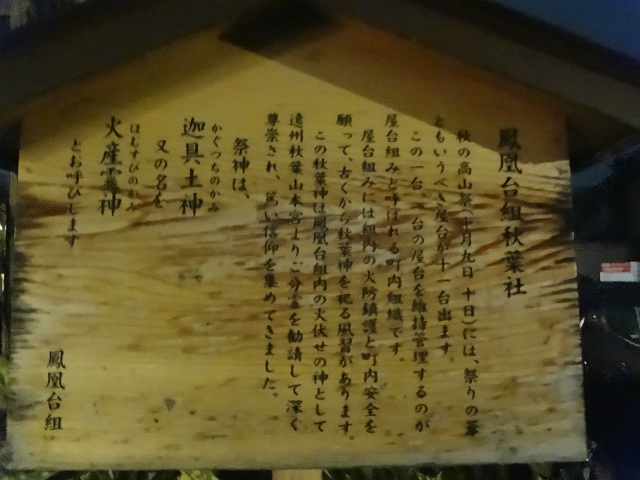 鳳凰台組秋葉社
秋の高山祭(十月九日 十日)には、祭りの華
ともいうべき屋台が十一台出ます。
この一台一台の屋台を維持管理するのが
屋台組みと呼ばれる町内組織です。
屋台組みには組内の火防鎮護と町内安全を
願って、古くから秋葉神を祀る風習があります。
この秋葉神は鳳凰台組内の火伏せの神として
遠州秋葉山本宮よりご分霊を勧請して深く
尊崇され、篤い信仰を集めてきました。
祭神は、
かぐつちのかみ
迦具土神
又の名を
ほむすびのかみ
火産霊神
とお呼びします
鳳凰台組